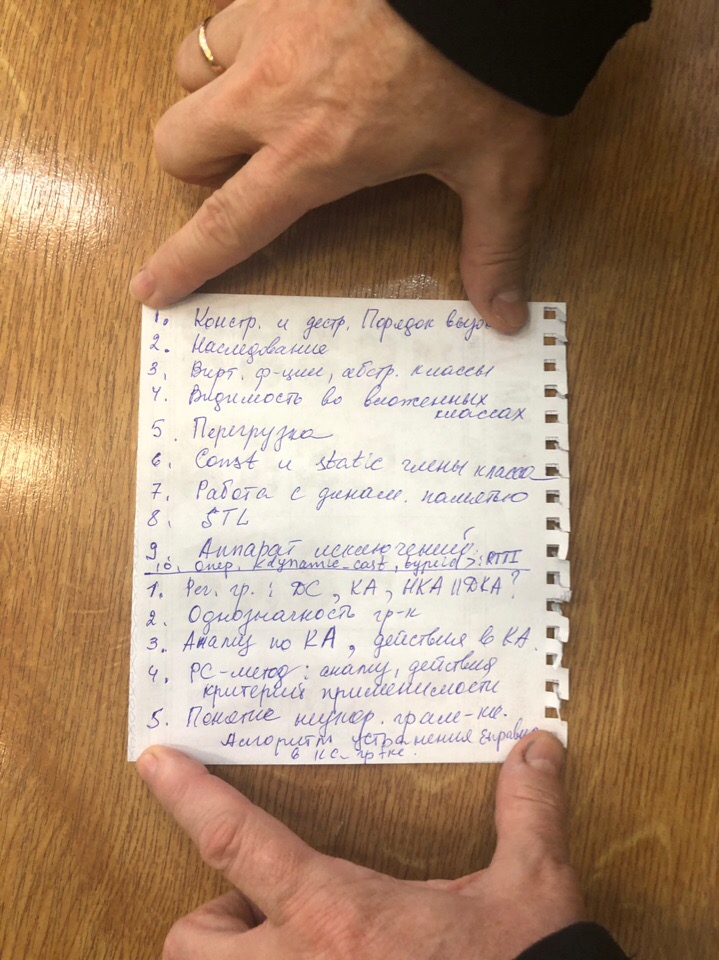 1. Констр. и дестр. Порядок вызо
2. Наследование
3. Вирт. ф-ции, абстр. классы
4. Видимость во вложенных
классах
5. Перегрузка
6. Const и static члены класса
7. Работа с динам. памятью
8. STL
9. Аппарат исключений
10. Опер. <dynamic_cast, typeid>: RTTI
1. Рег. гр.: ДС, КА, НКА || ДКА?
2. Однозначность гр-к
3. Анализ по КА, действия в КА.
4. РС-метод: анализ, действия
критерий применимости
5. Понятие неукор. грам-ки.
Алгоритм устранения ε-правил
в КС-гр-ке.